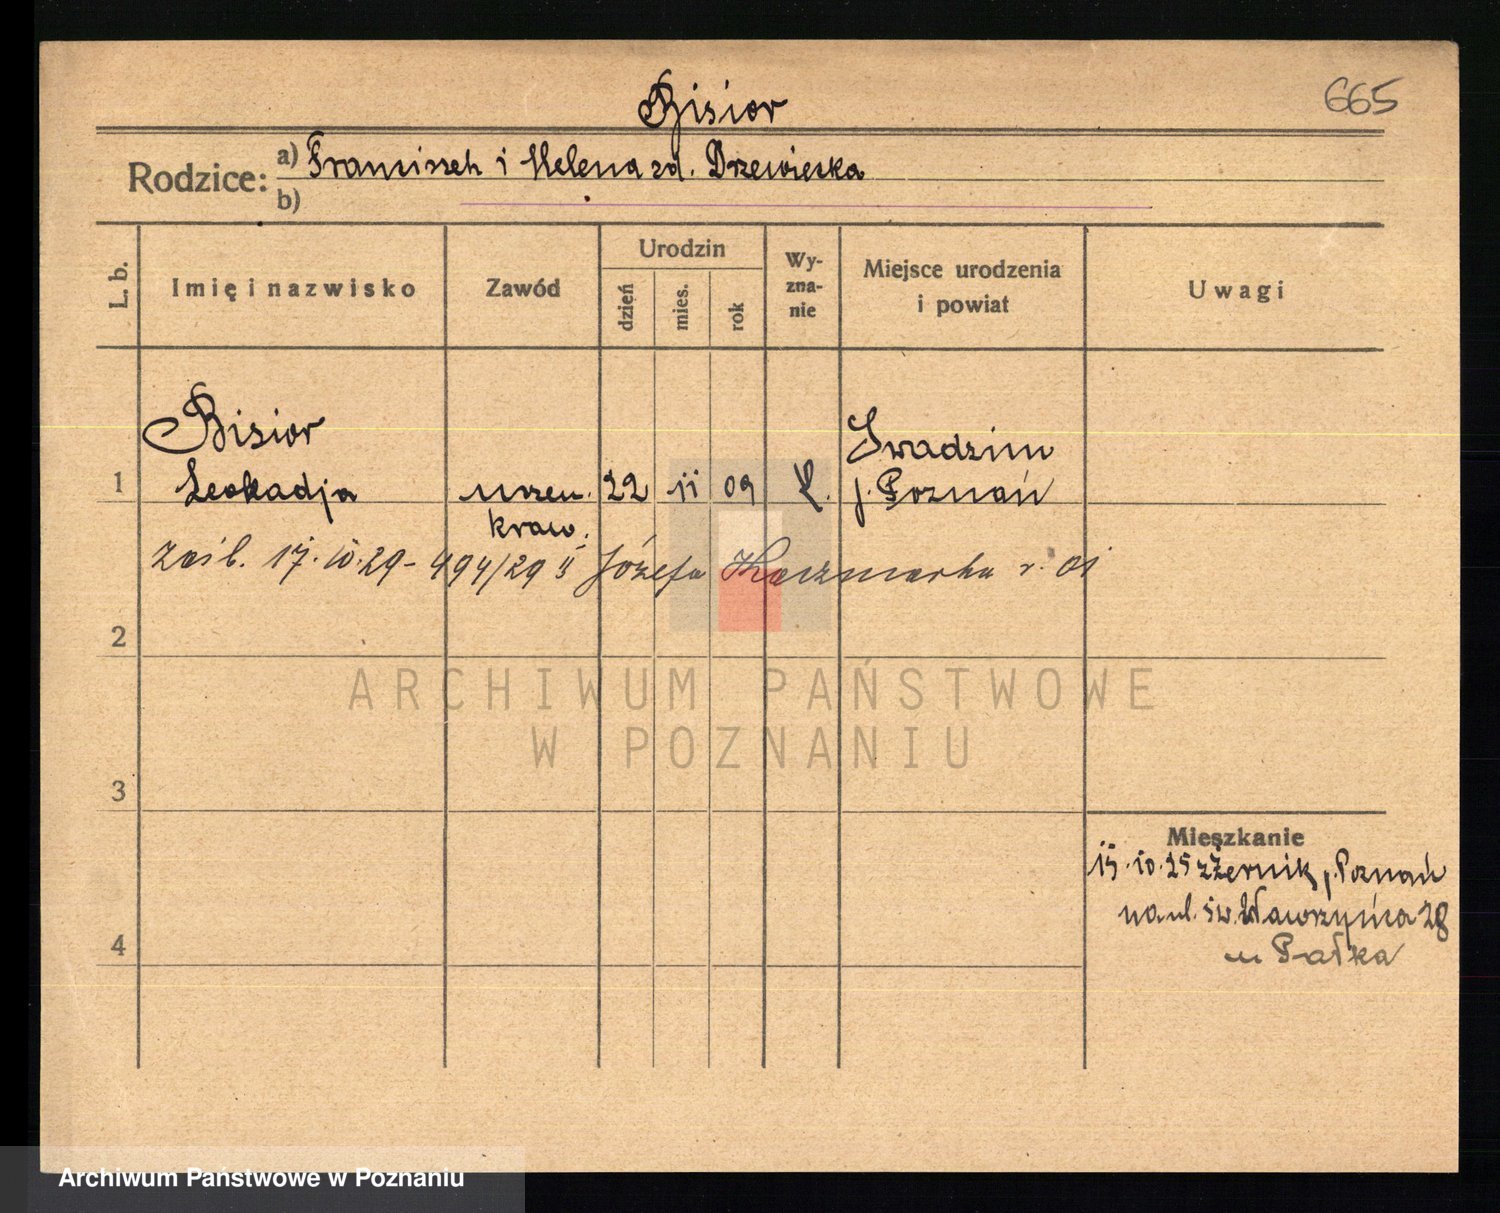 665
Bisior
Rodzice: a) Franciszek i Helena zd. Drzewiecka
b)
L. b. Imię i nazwisko Zawód Urodzin dzień mies. rok Wyznanie Miejsce urodzenia i powiat Uwagi
Bisior Swadzim
1 Leokadja uczen. 22 11 09 k. p. Poznań
kraw.
zaśl. 17.10.29 - 494/29 II Józefa Kaczmarka r. 01
2
ARCHIWUM PAŃSTWOWE
W POZNANIU
3
Mieszkanie
15.10.25 z Żernik, p. Poznań
na ul. św. Wawrzyńca 28
4
u Pałka
Archiwum Państwowe w Poznaniu